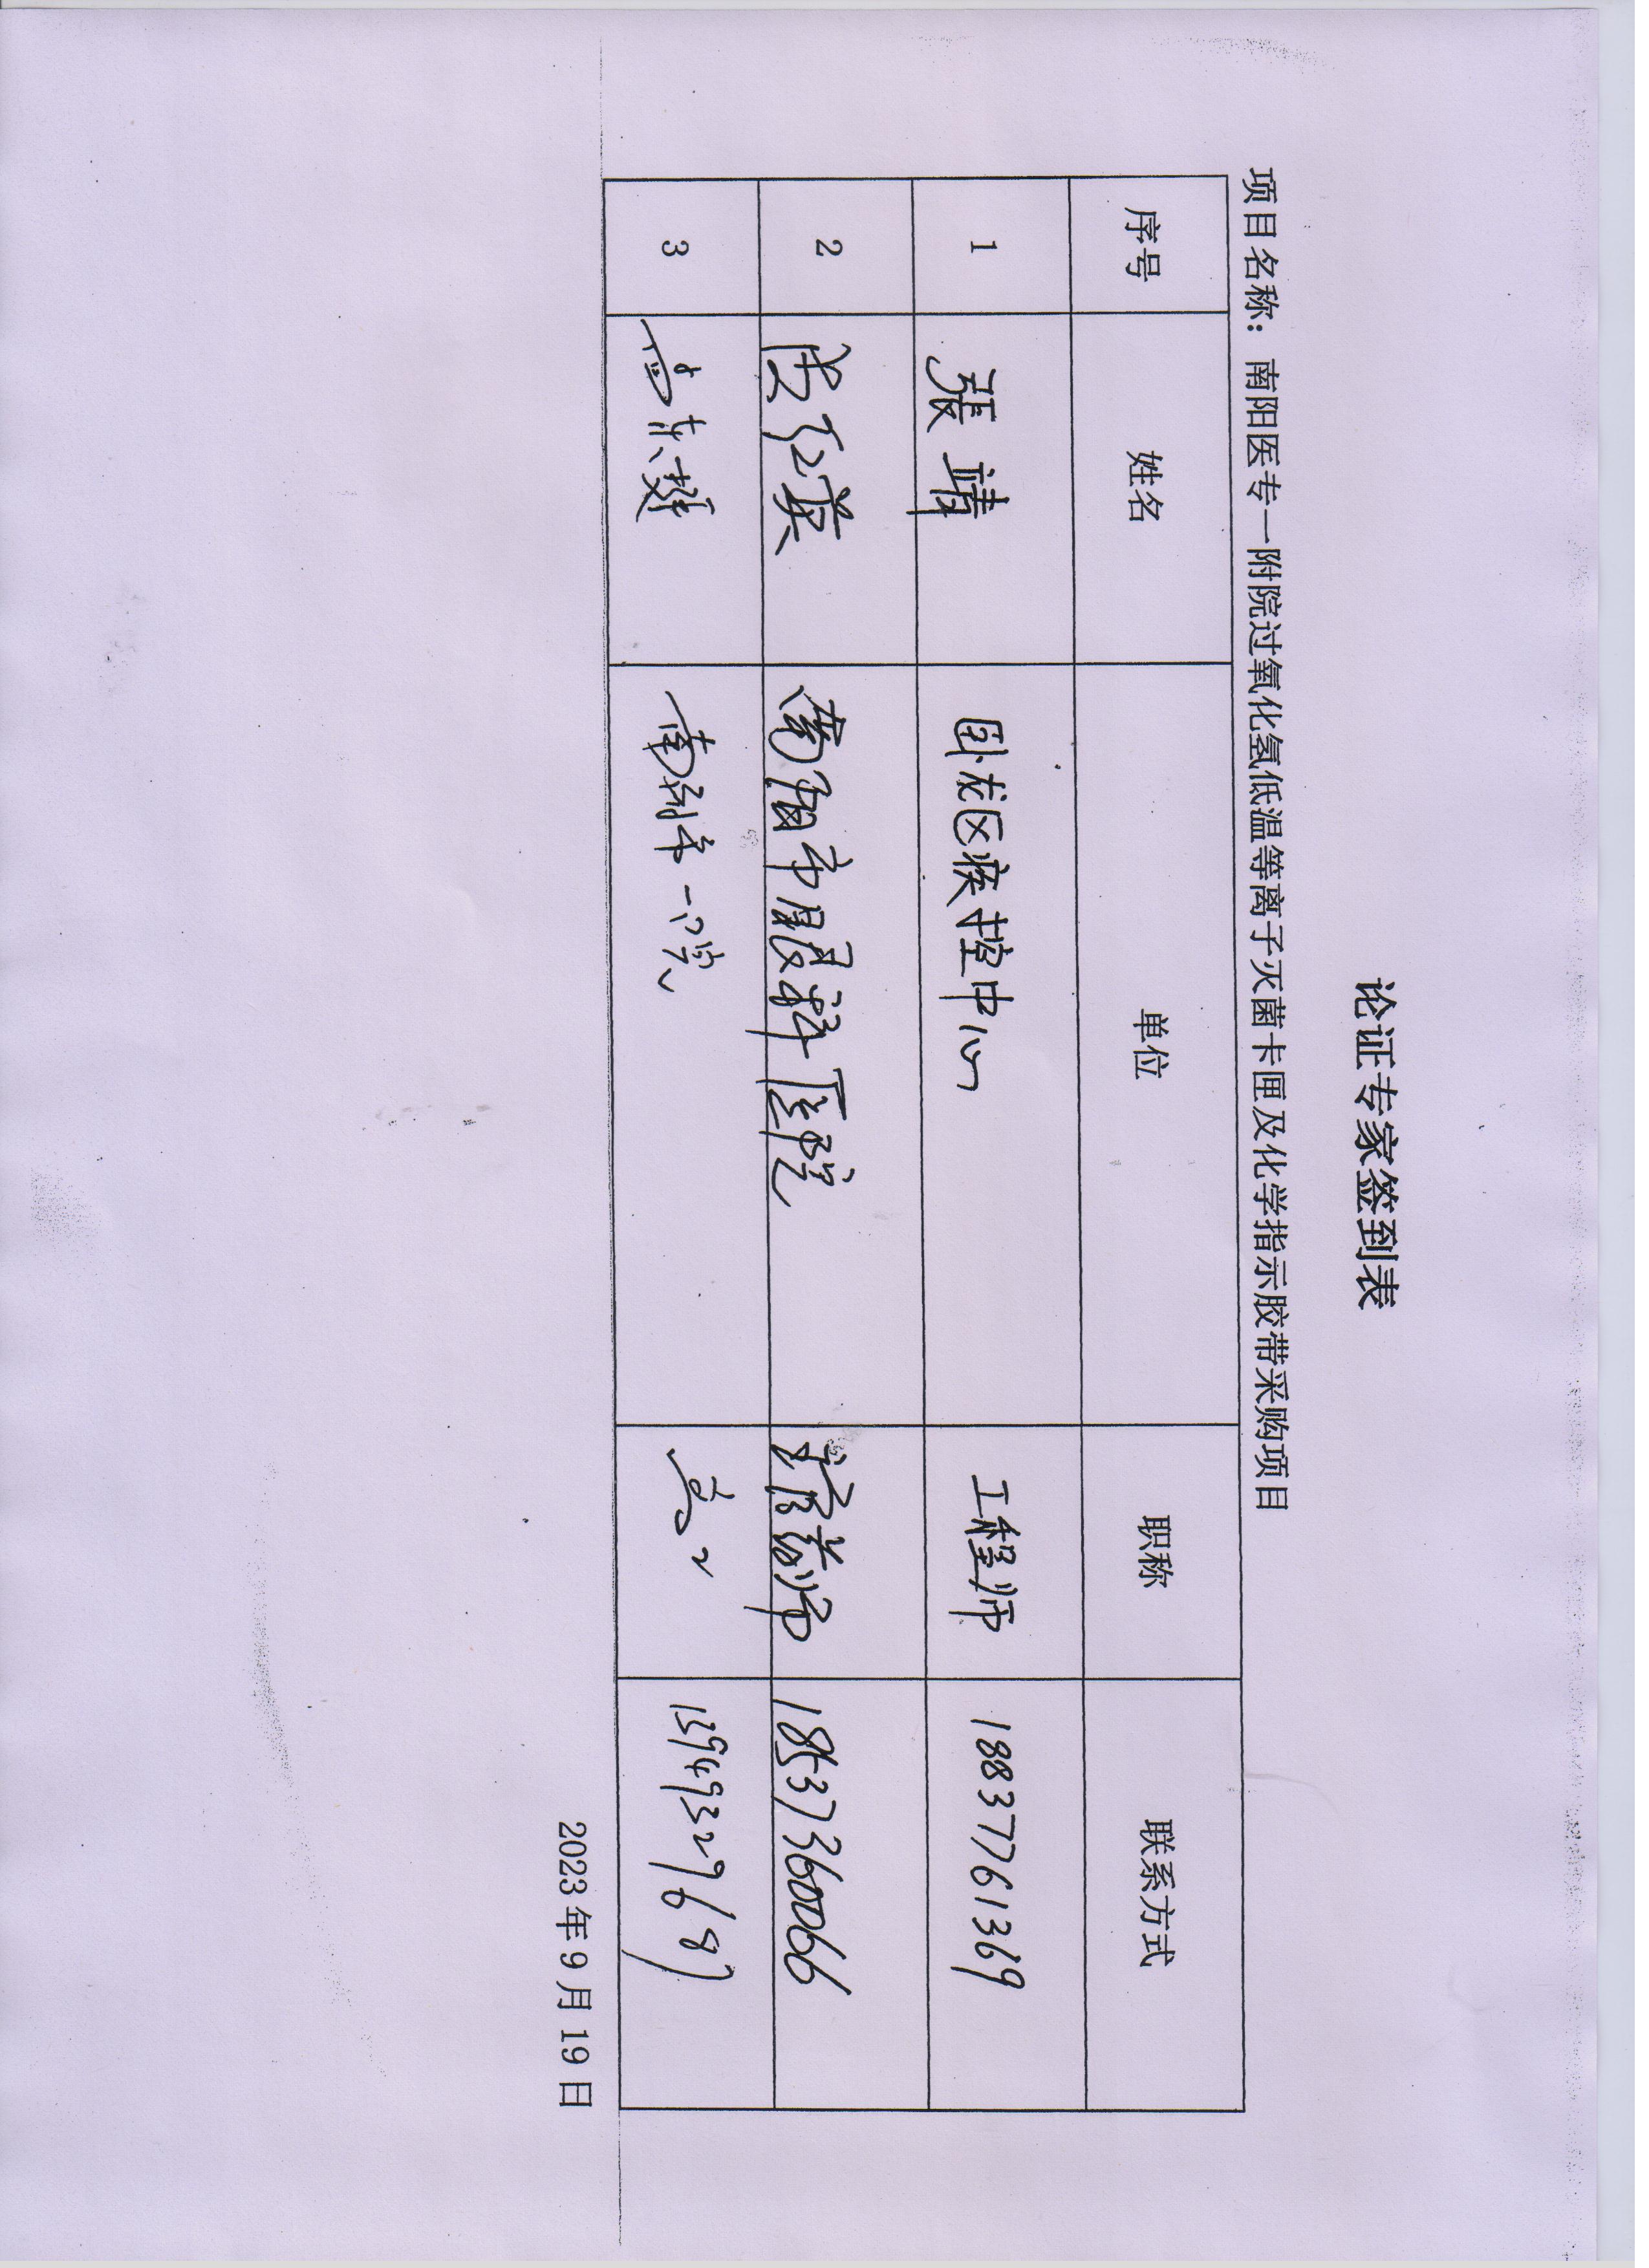 论证专家签到表
项目名称：南阳医专一附院过氧化氢低温等离子灭菌卡匣及化学指示胶带采购项目
序号 姓名 单位 职称 联系方式
1 張靖 卧龙区疾控中心 工程师 18837761369
2 红英 南阳市眼科医院 18537360066
3 南阳市一院 高工 13949329687
2023年9月19日